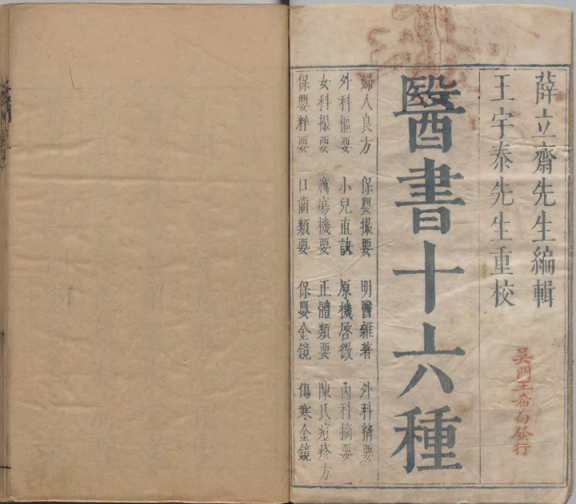 薛立齋先生編輯
王宇泰先生重校
吳門王希句發行
醫書十六種
婦人良方 保嬰撮要 明醫雜著 外科精要
外科樞要 小兒直訣 原機啓微 內科摘要
女科撮要 癘瘍機要 正體類要 陳氏痘疹方
保嬰粹要 口齒類要 保嬰金鏡 傷寒金鏡